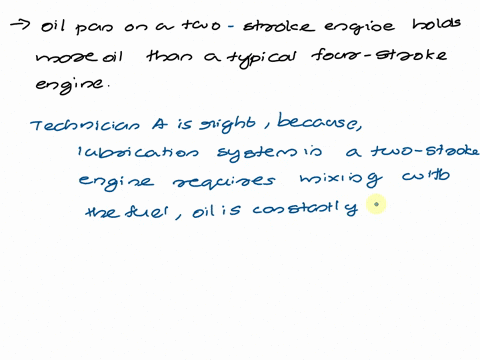 → oil pan on a two - stroke engine holds
more oil than a typical four-stroke
engine.
Technician A is right, because,
lubrication system in a two-stroke
engine requires mixing with
the fuel, oil is constantly